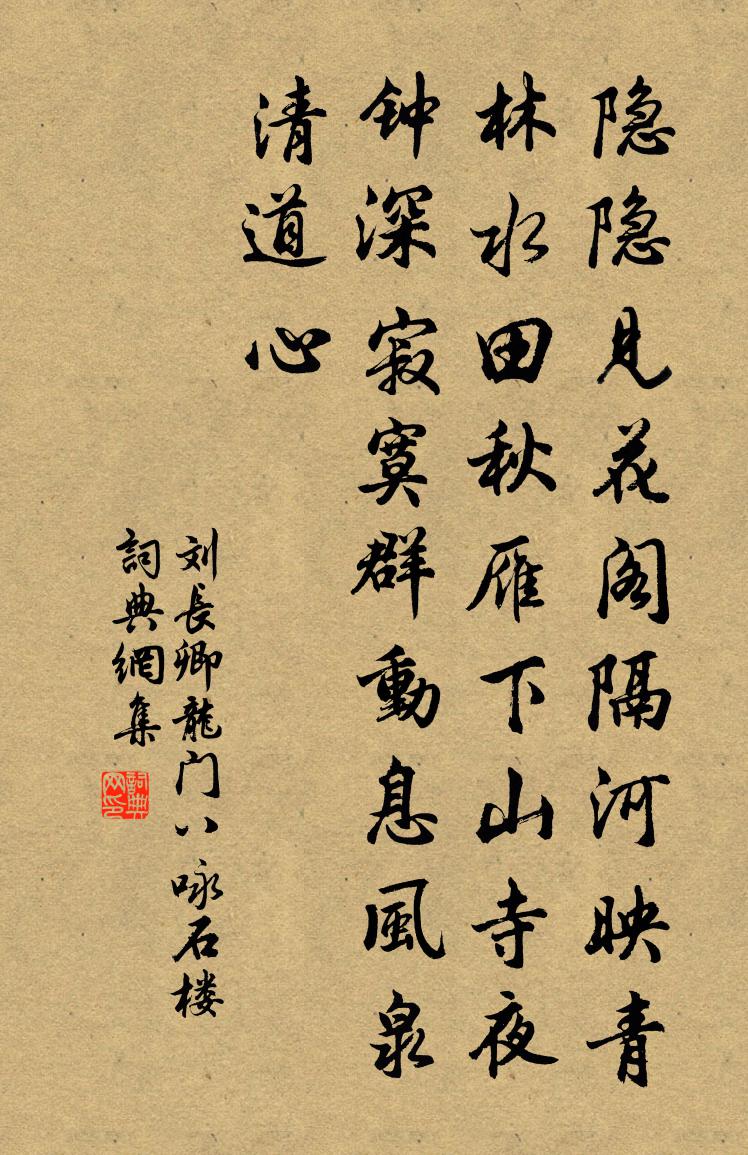 隐隐见花阁隔河映青
林水田秋雁下山寺夜
钟深寂寞群動息風泉
清道心
刘長卿龍门八咏石楼
詞典網集
詞典
网印